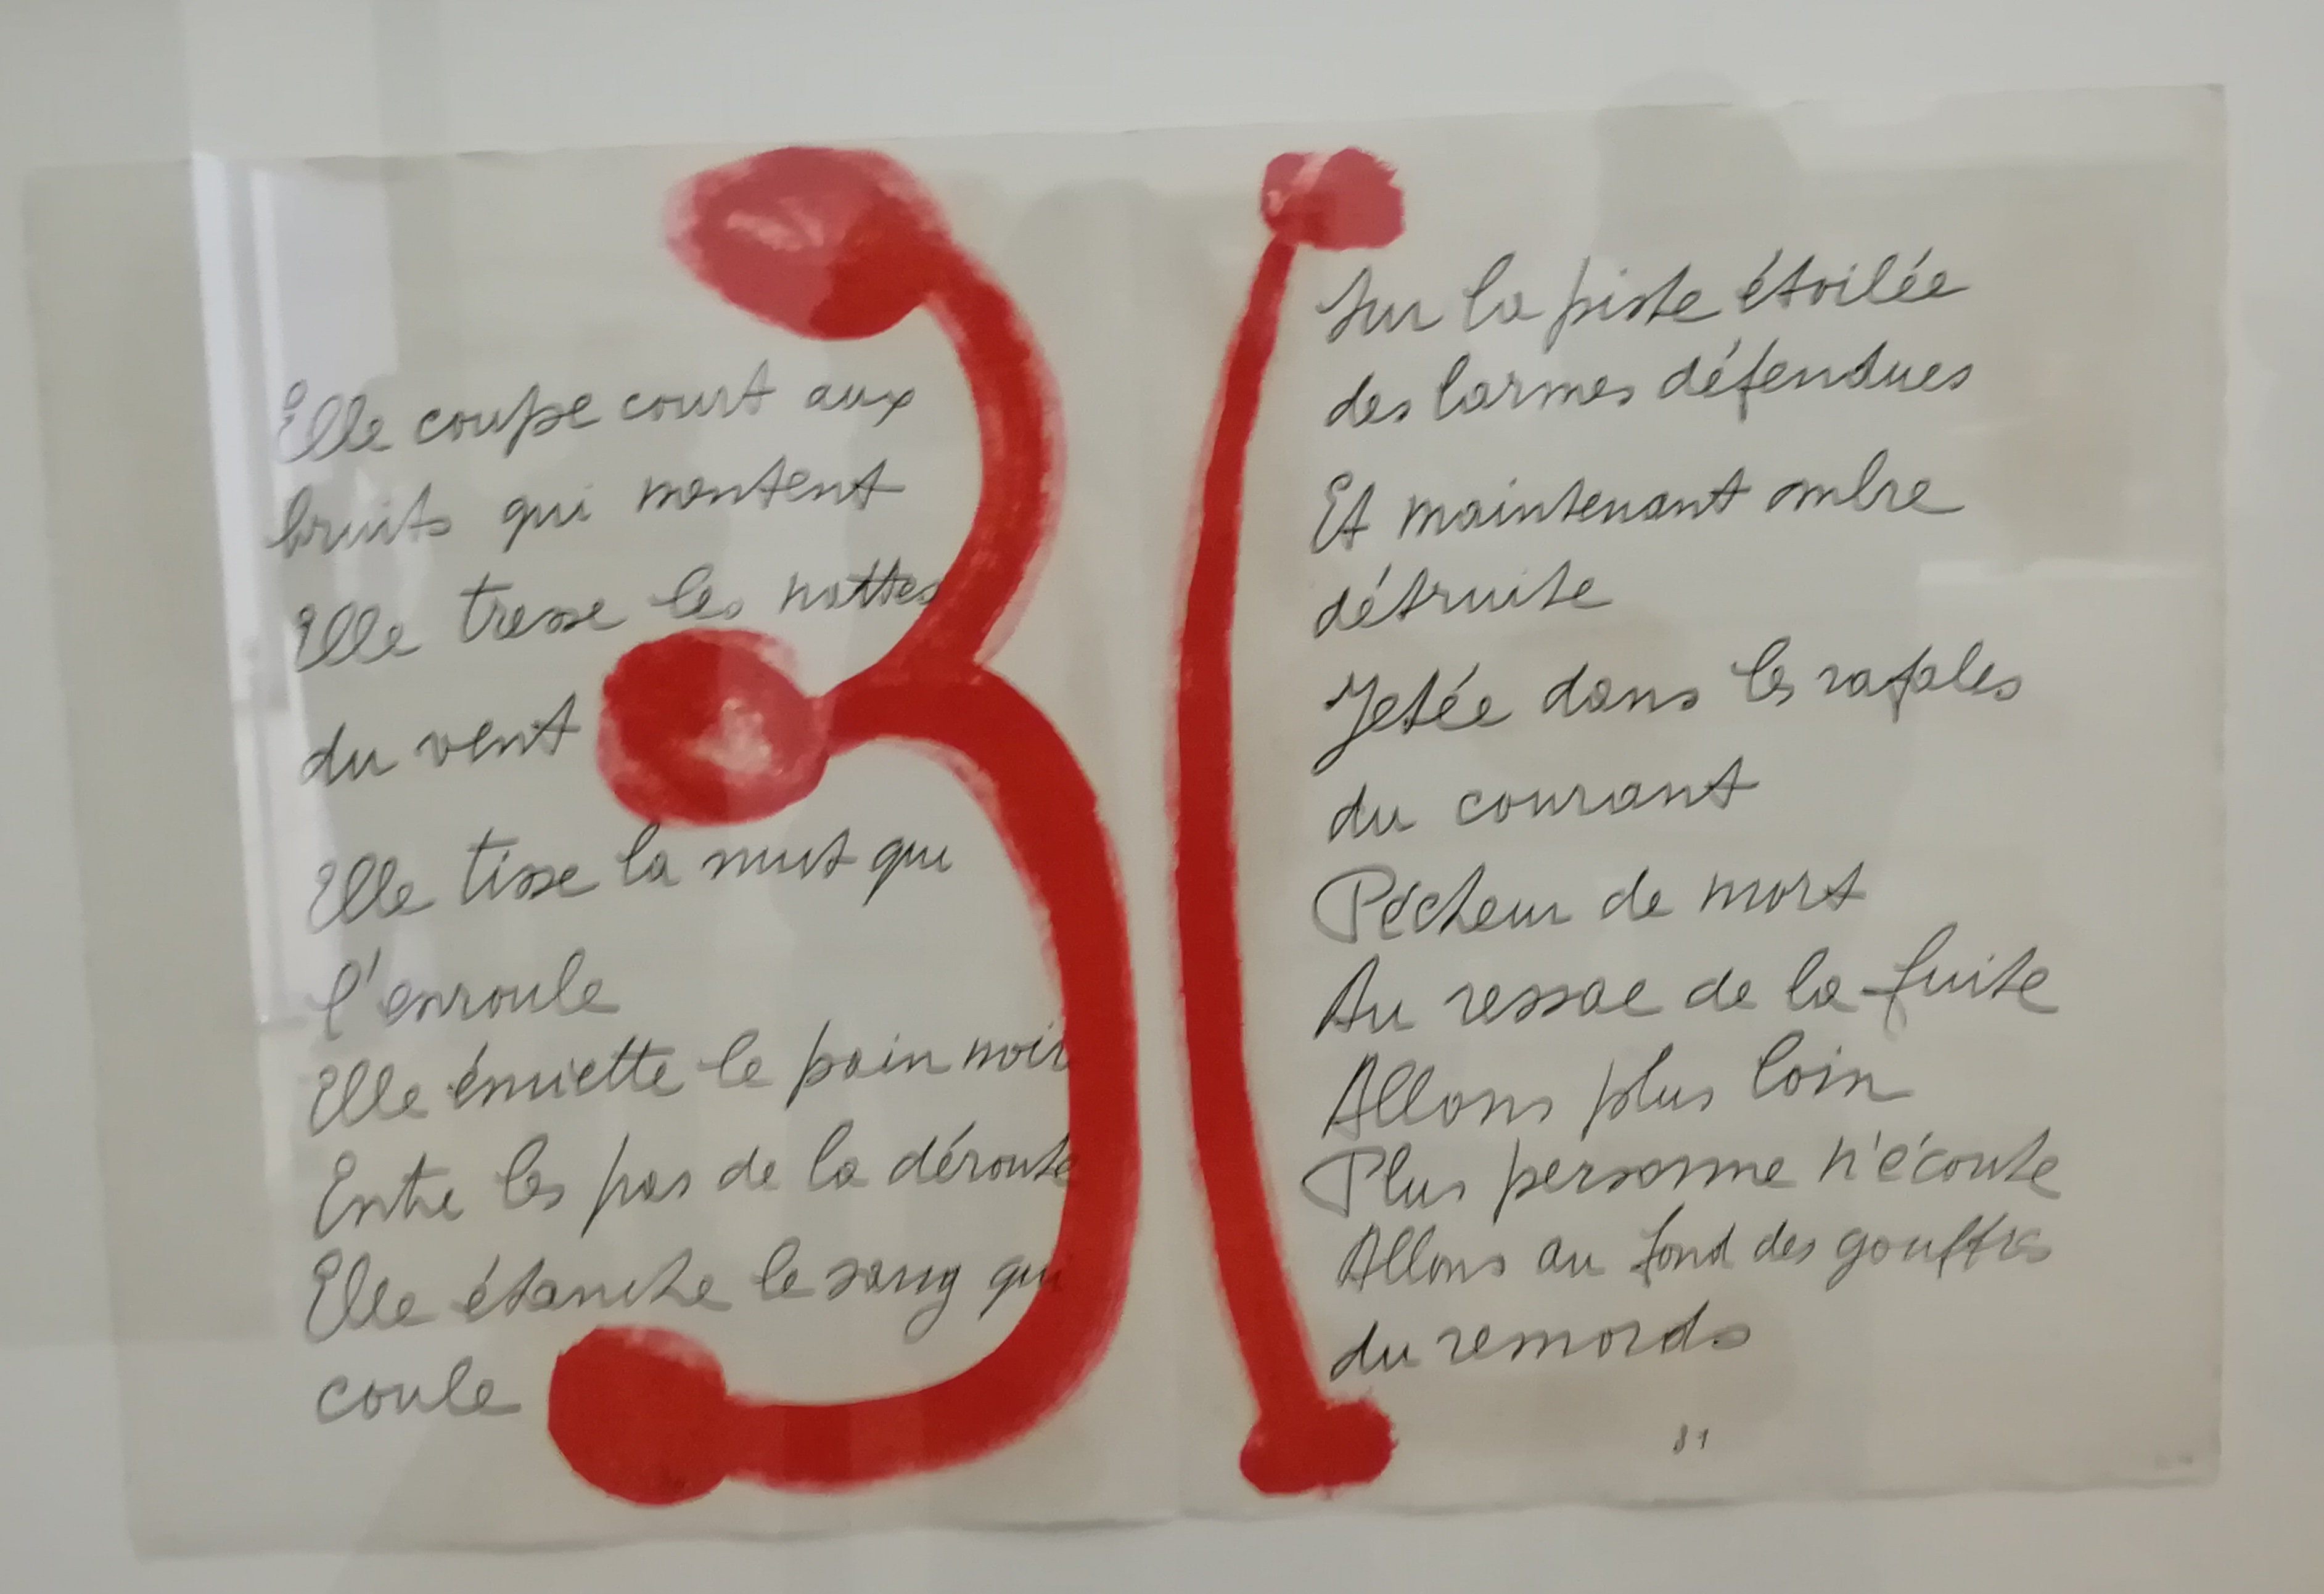 Elle coupe court aux
bruits qui montent
Elle tresse les nattes
du vent
Elle tisse la nuit qui
l'enroule
Elle émiette le pain noir
Entre les pas de la déroute
Elle étanche le sang qui
coule
Sur la piste étoilée
des larmes défendues
Et maintenant ombre
détruite
Jetée dans les rafales
du courant
Pêcheur de mort
Au ressac de la fuite
Allons plus loin
Plus personne n'écoute
Allons au fond des gouffres
du remords
81